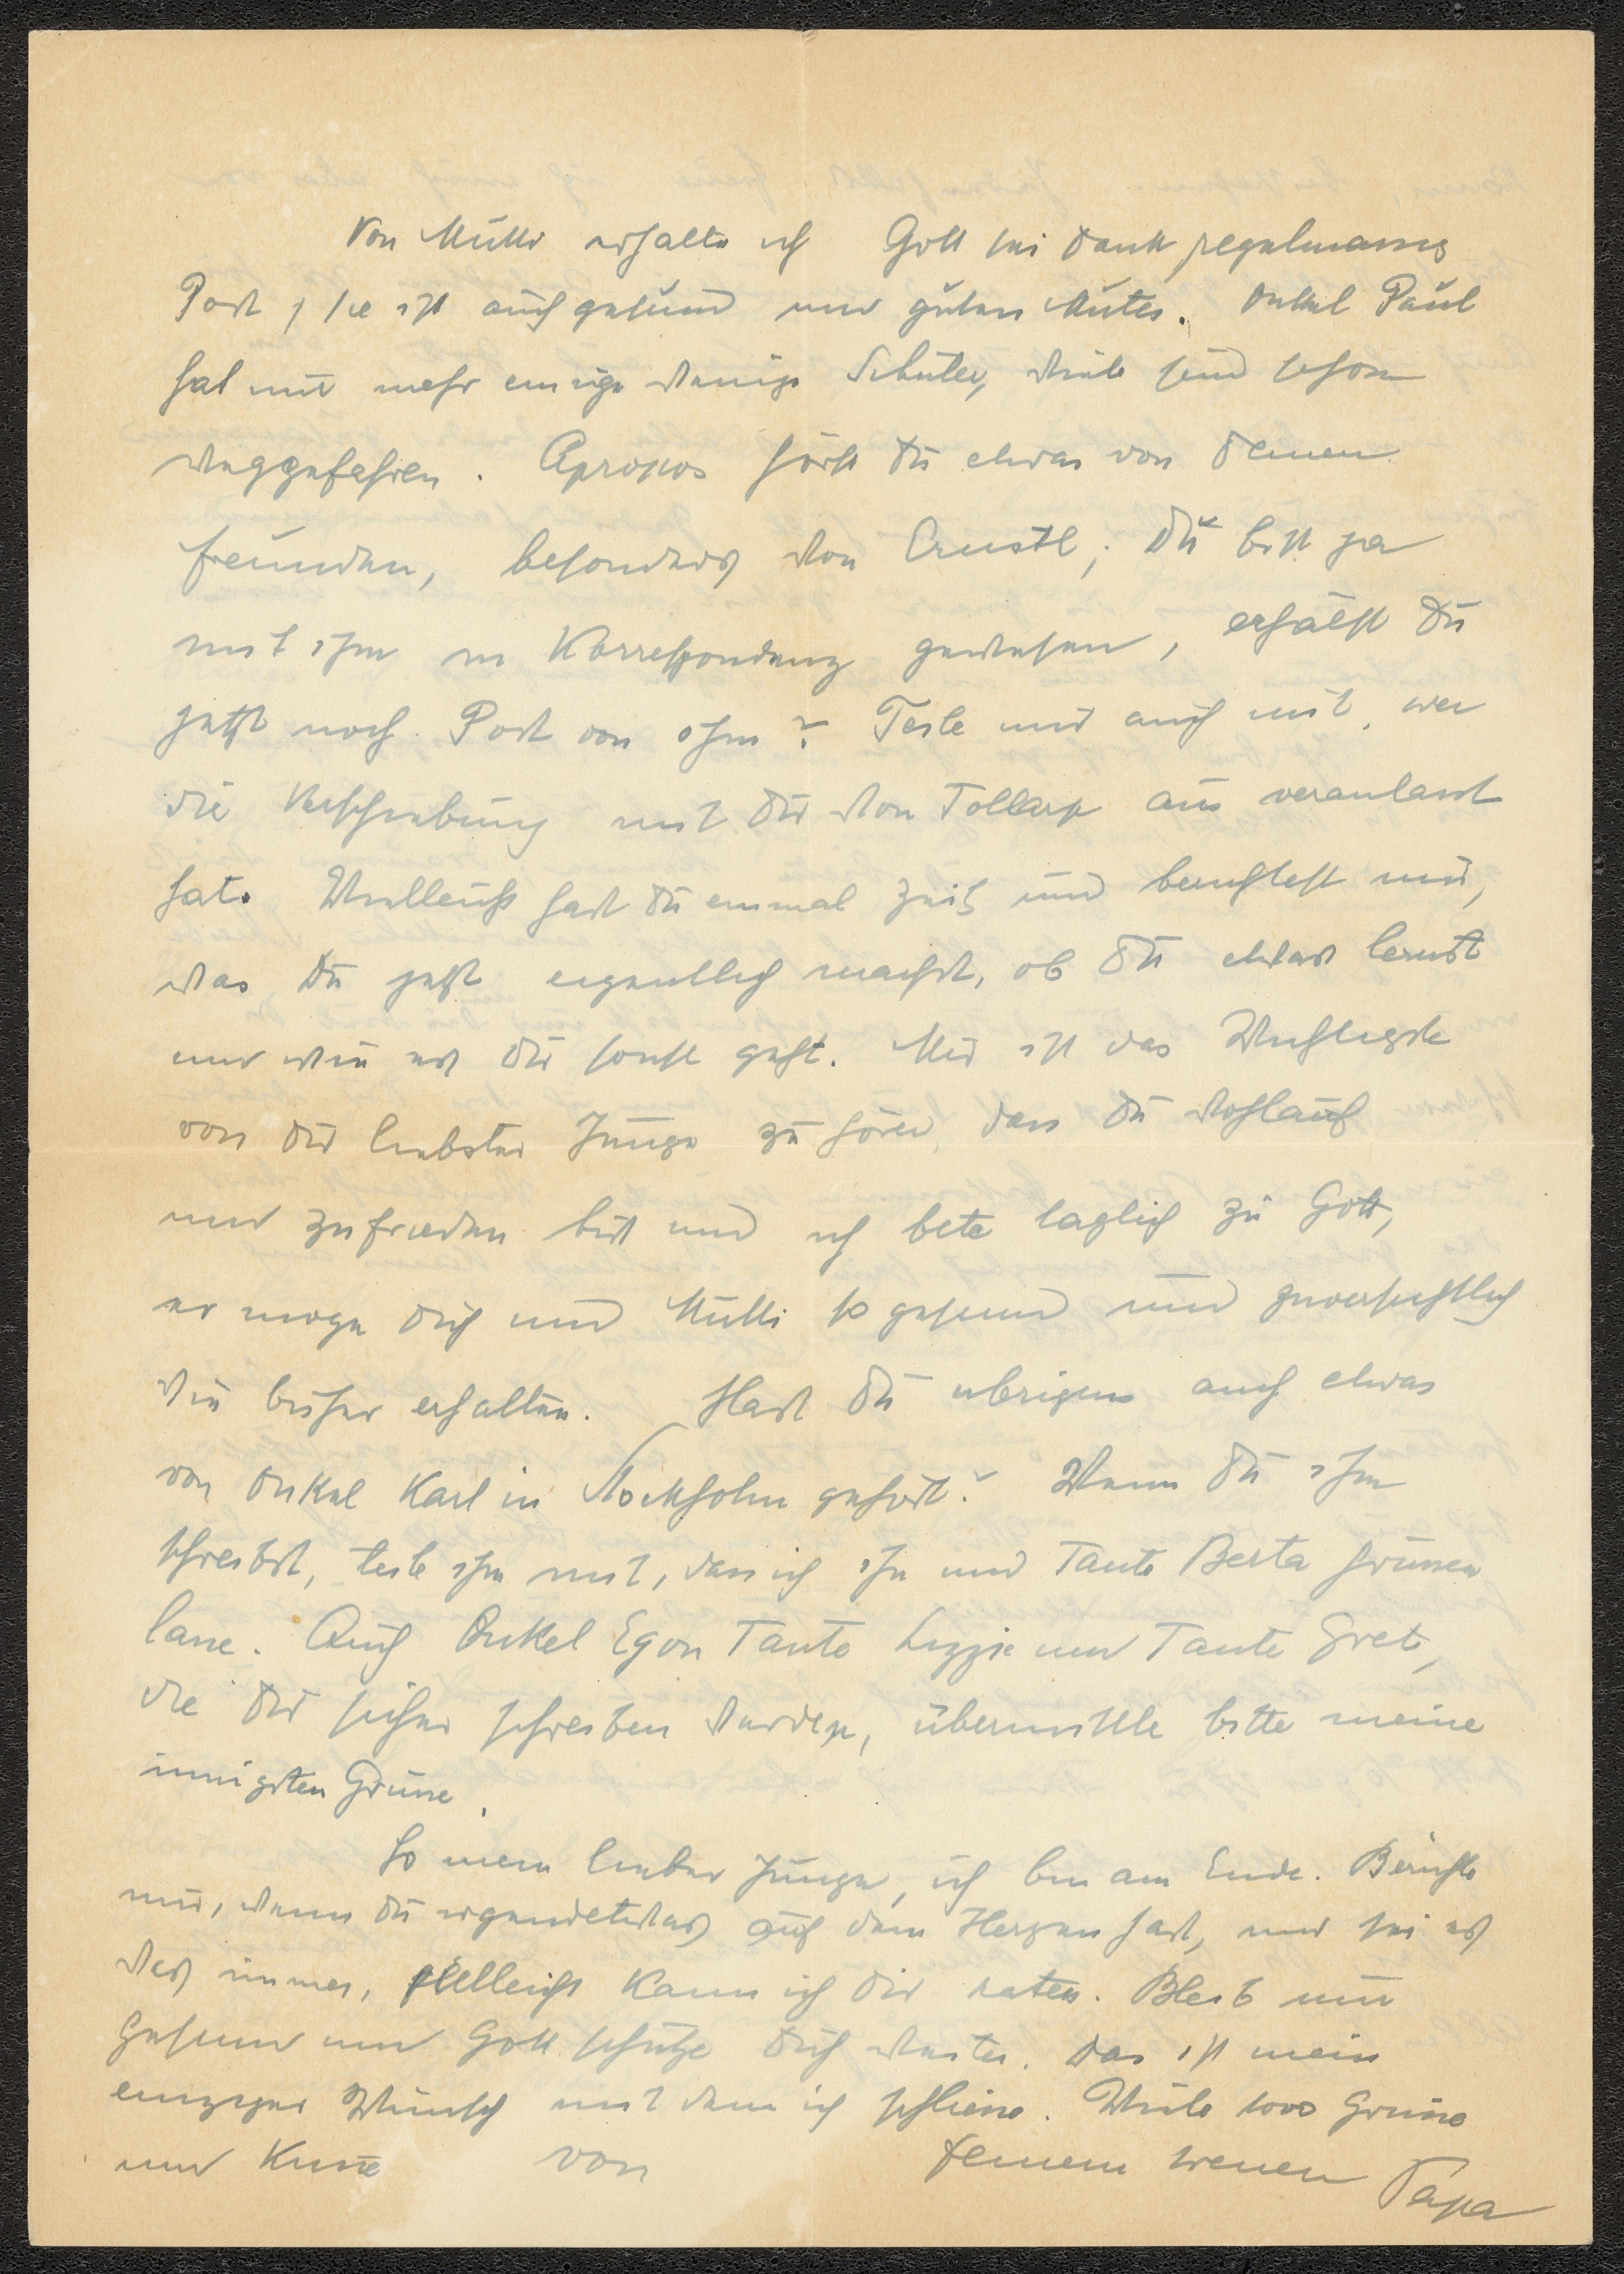 Von Mutti erhalte ich Gott sei Dank regelmassig
Post, sie ist auch gesund und guten Mutes. Onkel Paul
hat nur mehr einige wenige Schüler, viele sind schon
weggefahren. Apropos hörst Du etwas von Deinen
Freunden, besonders von Ernstl; Du bist ja
mit ihm in Korrespondenz gewesen, erhälst Du
jetzt noch Post von ihm? Teile mir auch mit, wer
die Verschiebung mit Dir von Tollarp aus veranlasst
hat. Vielleicht hast Du einmal Zeit und berichtest mir,
was Du jetzt eigentlich machst, ob Du etwas lernst
und wie es Dir sonst geht. Mir ist das Wichtigste
von Dir liebster Junge zu hören, dass Du wohlauf
und zufrieden bist und ich bete taglich zu Gott,
er moge Dich und Mutti so gesund und zuversichtlich
wie bisher erhalten. Hast Du ubrigens auch etwas
von Onkel Karl in Stockholm gehört? Wenn Du ihm
schreibst, teile ihm mit, dass ich ihn und Tante Berta grüssen
lasse. Auch Onkel Egon Tante Lizzie und Tante Grete,
die Dir sicher schreiben werden, übermittle bitte meine
innigsten Grüsse.
So mein lieber Junge, ich bin am Ende. Berichte
mir, wenn Du irgendetwas auf dem Herzen hast, und sei es
was immer, vielleicht kann ich Dir raten. Bleib nur
gesund und Gott schütze Dich weiter. Das ist mein
einziger Wunsch mit dem ich schliesse. Viele 1000 Grüsse
und Küsse von Deinem treuen Papa